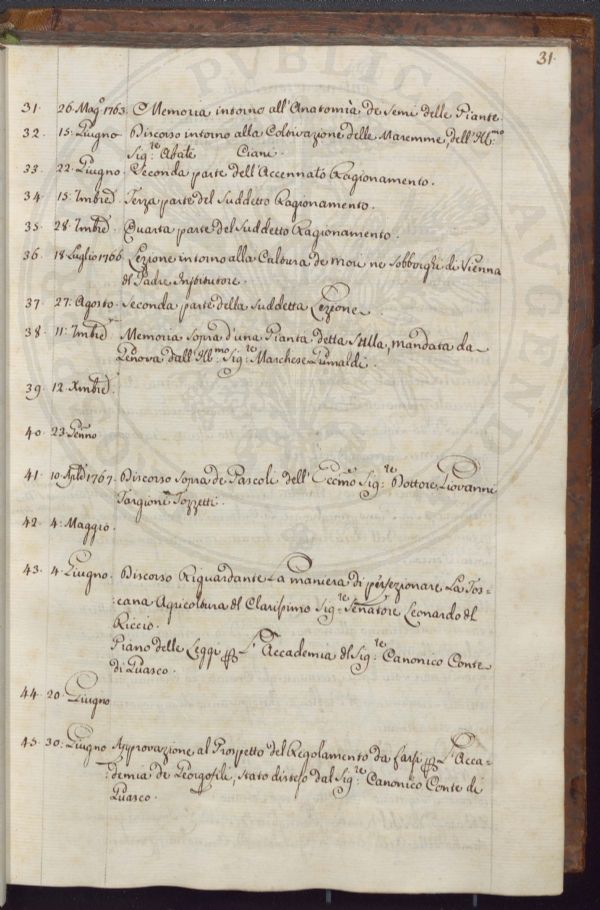 31.
31. 26. Mag.º 1763. Memoria intorno all'Anatomia de Semi delle Piante.
32. 15. Giugno Discorso intorno alla Coltivazione delle Maremme, dell'Ill:mo
Sig:re Abate Ciani.
33. 22. Giugno. Seconda parte dell'Accennato Ragionamento.
34. 15: 7mbre. Terza parte del Suddetto Ragionamento.
35. 28. 7mbre. Quarta parte del Suddetto Ragionamento.
36. 18. Luglio 1766. Lezione intorno alla Cultura de Mori ne Sobborghi di Vienna
del Padre Institutore.
37. 27: Agosto. Seconda parte della Suddetta Lezione.
38. 11: 7mbre. Memoria Sopra d'una Pianta detta Sulla, mandata da
Genova dall'Ill:mo Sig:re Marchese Grimaldi.
39. 12. Xmbre.
40. 23. Genno
41. 10. Aple 1767. Discorso Sopra de Pascoli dell'Eccmo Sig:re Dottore Giovanni
Targioni Tozzetti.
42. 4: Maggio.
43. 4. Giugno. Discorso Riguardante La maniera di perfezionare La Tos=
:cana Agricoltura del Clarissimo Sig:re Senatore Leonardo del
Riccio.
Piano delle Leggi p L'Accademia del Sig:re Canonico Conte
di Guasco.
44. 20. Giugno
45. 30. Giugno Approvazione al Prospetto del Regolamento da farsi p L'Acca=
:demia de Georgofili, stato disteso dal Sig:re Canonico Conte di
Guasco.
PVBLICO
AVGENDO